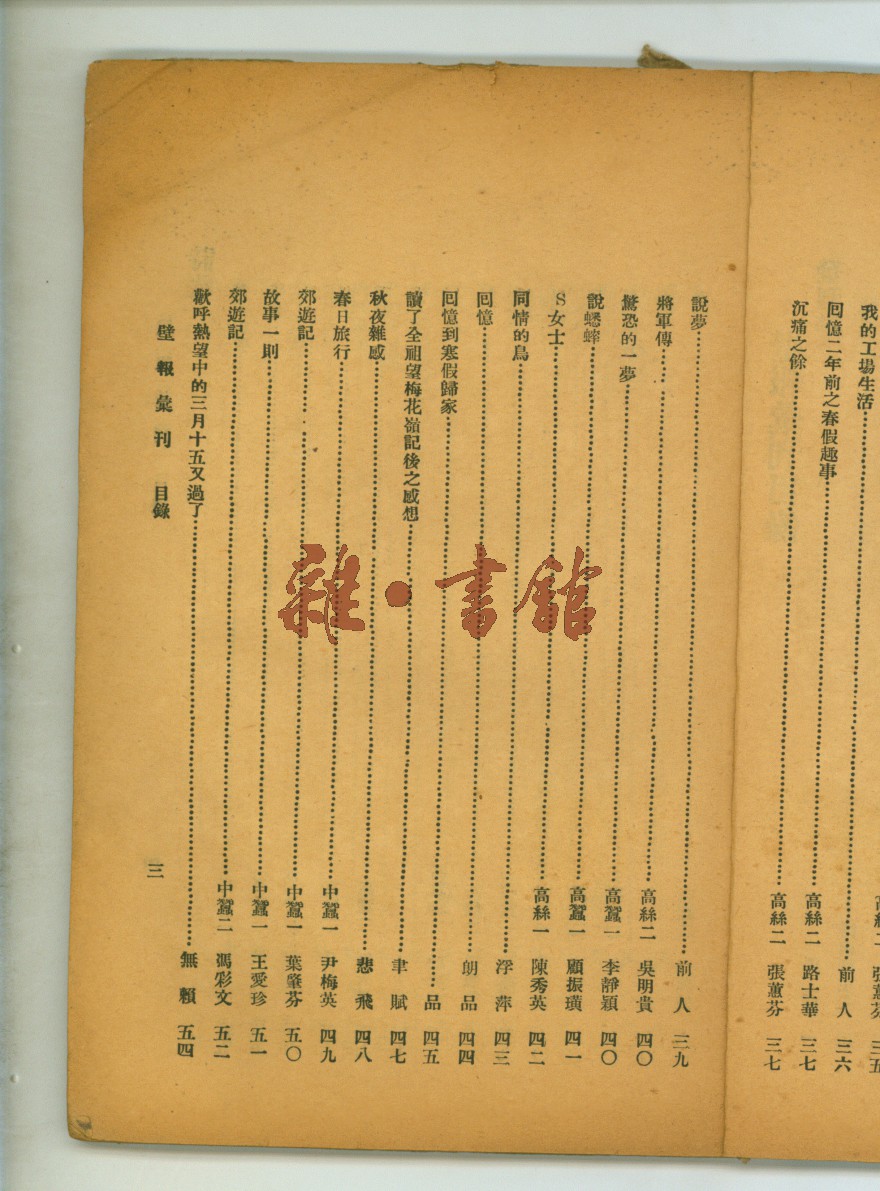 我的工場生活……高絲二 張蕙芬 三五
回憶二年前之春假趣事……前人 三六
沉痛之餘……高絲二 路士華 三七
高絲二 張蕙芬 三七
說夢……前人 三九
將軍傳……高絲二 吳明貴 四〇
驚恐的一夢……高蠶一 李靜穎 四〇
說蟋蟀……高蠶一 顧振璜 四一
S女士……高絲一 陳秀英 四二
同情的鳥……浮萍 四三
回憶……朗品 四四
回憶到寒假歸家……品 四五
讀了全祖望梅花嶺記後之感想……聿賦 四七
秋夜雜感……悲飛 四八
春日旅行……中蠶一 尹梅英 四九
郊遊記……中蠶一 葉肇芬 五〇
故事一則……中蠶一 王愛珍 五一
郊遊記……中蠶二 馮彩文 五二
歡呼熱望中的三月十五又過了……無賴 五四
壁報彙刊 目錄
三
雜·書館